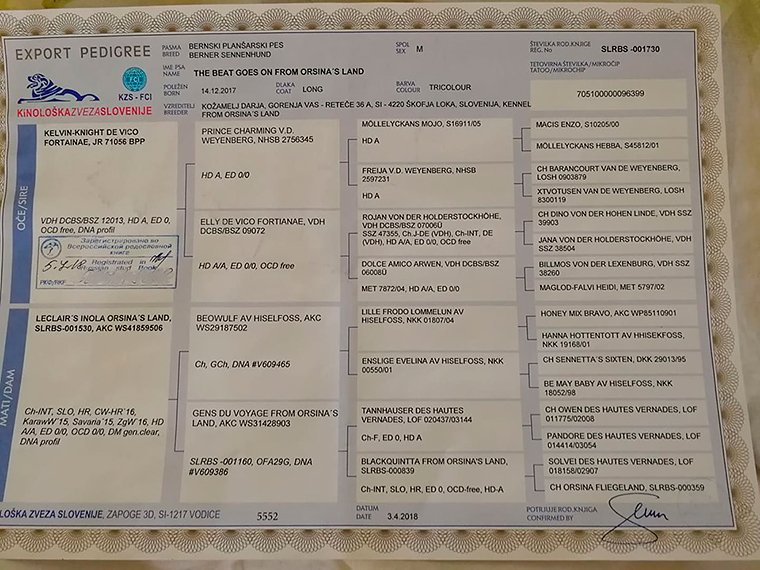 EXPORT PEDIGREE
KZS - FCI
KINOLOŠKAZVEZASLOVENIJE
PASMA BERNSKI PLANŠARSKI PES
BREED BERNER SENNENHUND
SPOL M
SEX
ŠTEVILKA ROD.KNJIGE SLRBS -001730
REG. No
IME PSA
NAME THE BEAT GOES ON FROM ORSINA´S LAND
TETOVIRNA ŠTEVILKA/MIKROČIP
TATOO/MICROCHIP
POLEŽEN 14.12.2017
BORN
DLAKA LONG
COAT
BARVA TRICOLOUR
COLOUR
705100000096399
VZREDITELJ KOŽAMELJ DARJA, GORENJA VAS - RETEČE 36 A, SI - 4220 ŠKOFJA LOKA, SLOVENIJA, KENNEL
BREEDER FROM ORSINA´S LAND
OČE/SIRE
KELVIN-KNIGHT DE VICO
FORTAINAE, JR 71056 BPP
VDH DCBS/BSZ 12013, HD A, ED 0,
OCD free, DNA profil
Зарегистрировано во
Всероссийской родословной
книге
5.7.18 Registered in
Russian Stud Book
РКФ/RKF
MATI/DAM
LECLAIR´S INOLA ORSINA´S LAND,
SLRBS-001530, AKC WS41859506
Ch-INT, SLO, HR, CW-HR´16,
KarawW´15, Savaria´15, ZgW´16, HD
A/A, ED 0/0, OCD 0/0, DM gen.clear,
DNA profil
PRINCE CHARMING V.D.
WEYENBERG, NHSB 2756345
HD A, ED 0/0
ELLY DE VICO FORTIANAE, VDH
DCBS/BSZ 09072
HD A/A, ED 0/0, OCD free
BEOWULF AV HISELFOSS, AKC
WS29187502
Ch, GCh, DNA #V609465
GENS DU VOYAGE FROM ORSINA´S
LAND, AKC WS31428903
SLRBS -001160, OFA29G, DNA
#V609386
MÖLLELYCKANS MOJO, S16911/05
HD A
FREIJA V.D. WEYENBERG, NHSB
2597231
HD A
ROJAN VON DER HOLDERSTOCKHÖHE,
VDH DCBS/BSZ 07006Ü
SSZ 47355, Ch J-DE (VDH), Ch-INT, DE
(VDH), HD A/A, ED 0/0, OCD free
DOLCE AMICO ARWEN, VDH DCBS/BSZ
06008Ü
MET 7872/04, HD A/A, ED 0/0
LILLE FRODO LOMMELUN AV
HISELFOSS, NKK 01807/04
ENSLIGE EVELINA AV HISELFOSS, NKK
00550/01
TANNHAUSER DES HAUTES
VERNADES, LOF 020437/03144
Ch-F, ED 0, HD A
BLACKQUINTTA FROM ORSINA'S LAND,
SLRBS-000839
Ch-INT, SLO, HR, ED 0, OCD-free, HD-A
MACIS ENZO, S10205/00
MÖLLELYCKANS HEBBA, S45812/01
CH BARANCOURT VAN DE WEYENBERG,
LOSH 0903879
XTVOTUSEN VAN DE WEYENBERG, LOSH
8300119
CH DINO VON DER HOHEN LINDE, VDH SSZ
39903
JANA VON DER HOLDERSTOCKHÖHE, VDH
SSZ 38504
BILLMOS VON DER LEXENBURG, VDH SSZ
38260
MAGLOD-FALVI HEIDI, MET 5797/02
HONEY MIX BRAVO, AKC WP85110901
HANNA HOTTENTOTT AV HHISEKFOSS,
NKK 19168/01
CH SENNETTA´S SIXTEN, DKK 29013/95
BE MAY BABY AV HISELFOSS, NKK
18052/98
CH OWEN DES HAUTES VERNADES, LOF
011775/02008
PANDORE DES HAUTES VERNADES, LOF
014414/03054
SOLVEI DES HAUTES VERNADES, LOF
018158/02907
CH ORSINA FLIEGELAND, SLRBS-000359
LOŠKA ZVEZA SLOVENIJE, ZAPOGE 3D, SI-1217 VODICE
5552
DATUM
DATE 3.4.2018
POTRJUJE ROD.KNJIGA
CONFIRMED BY